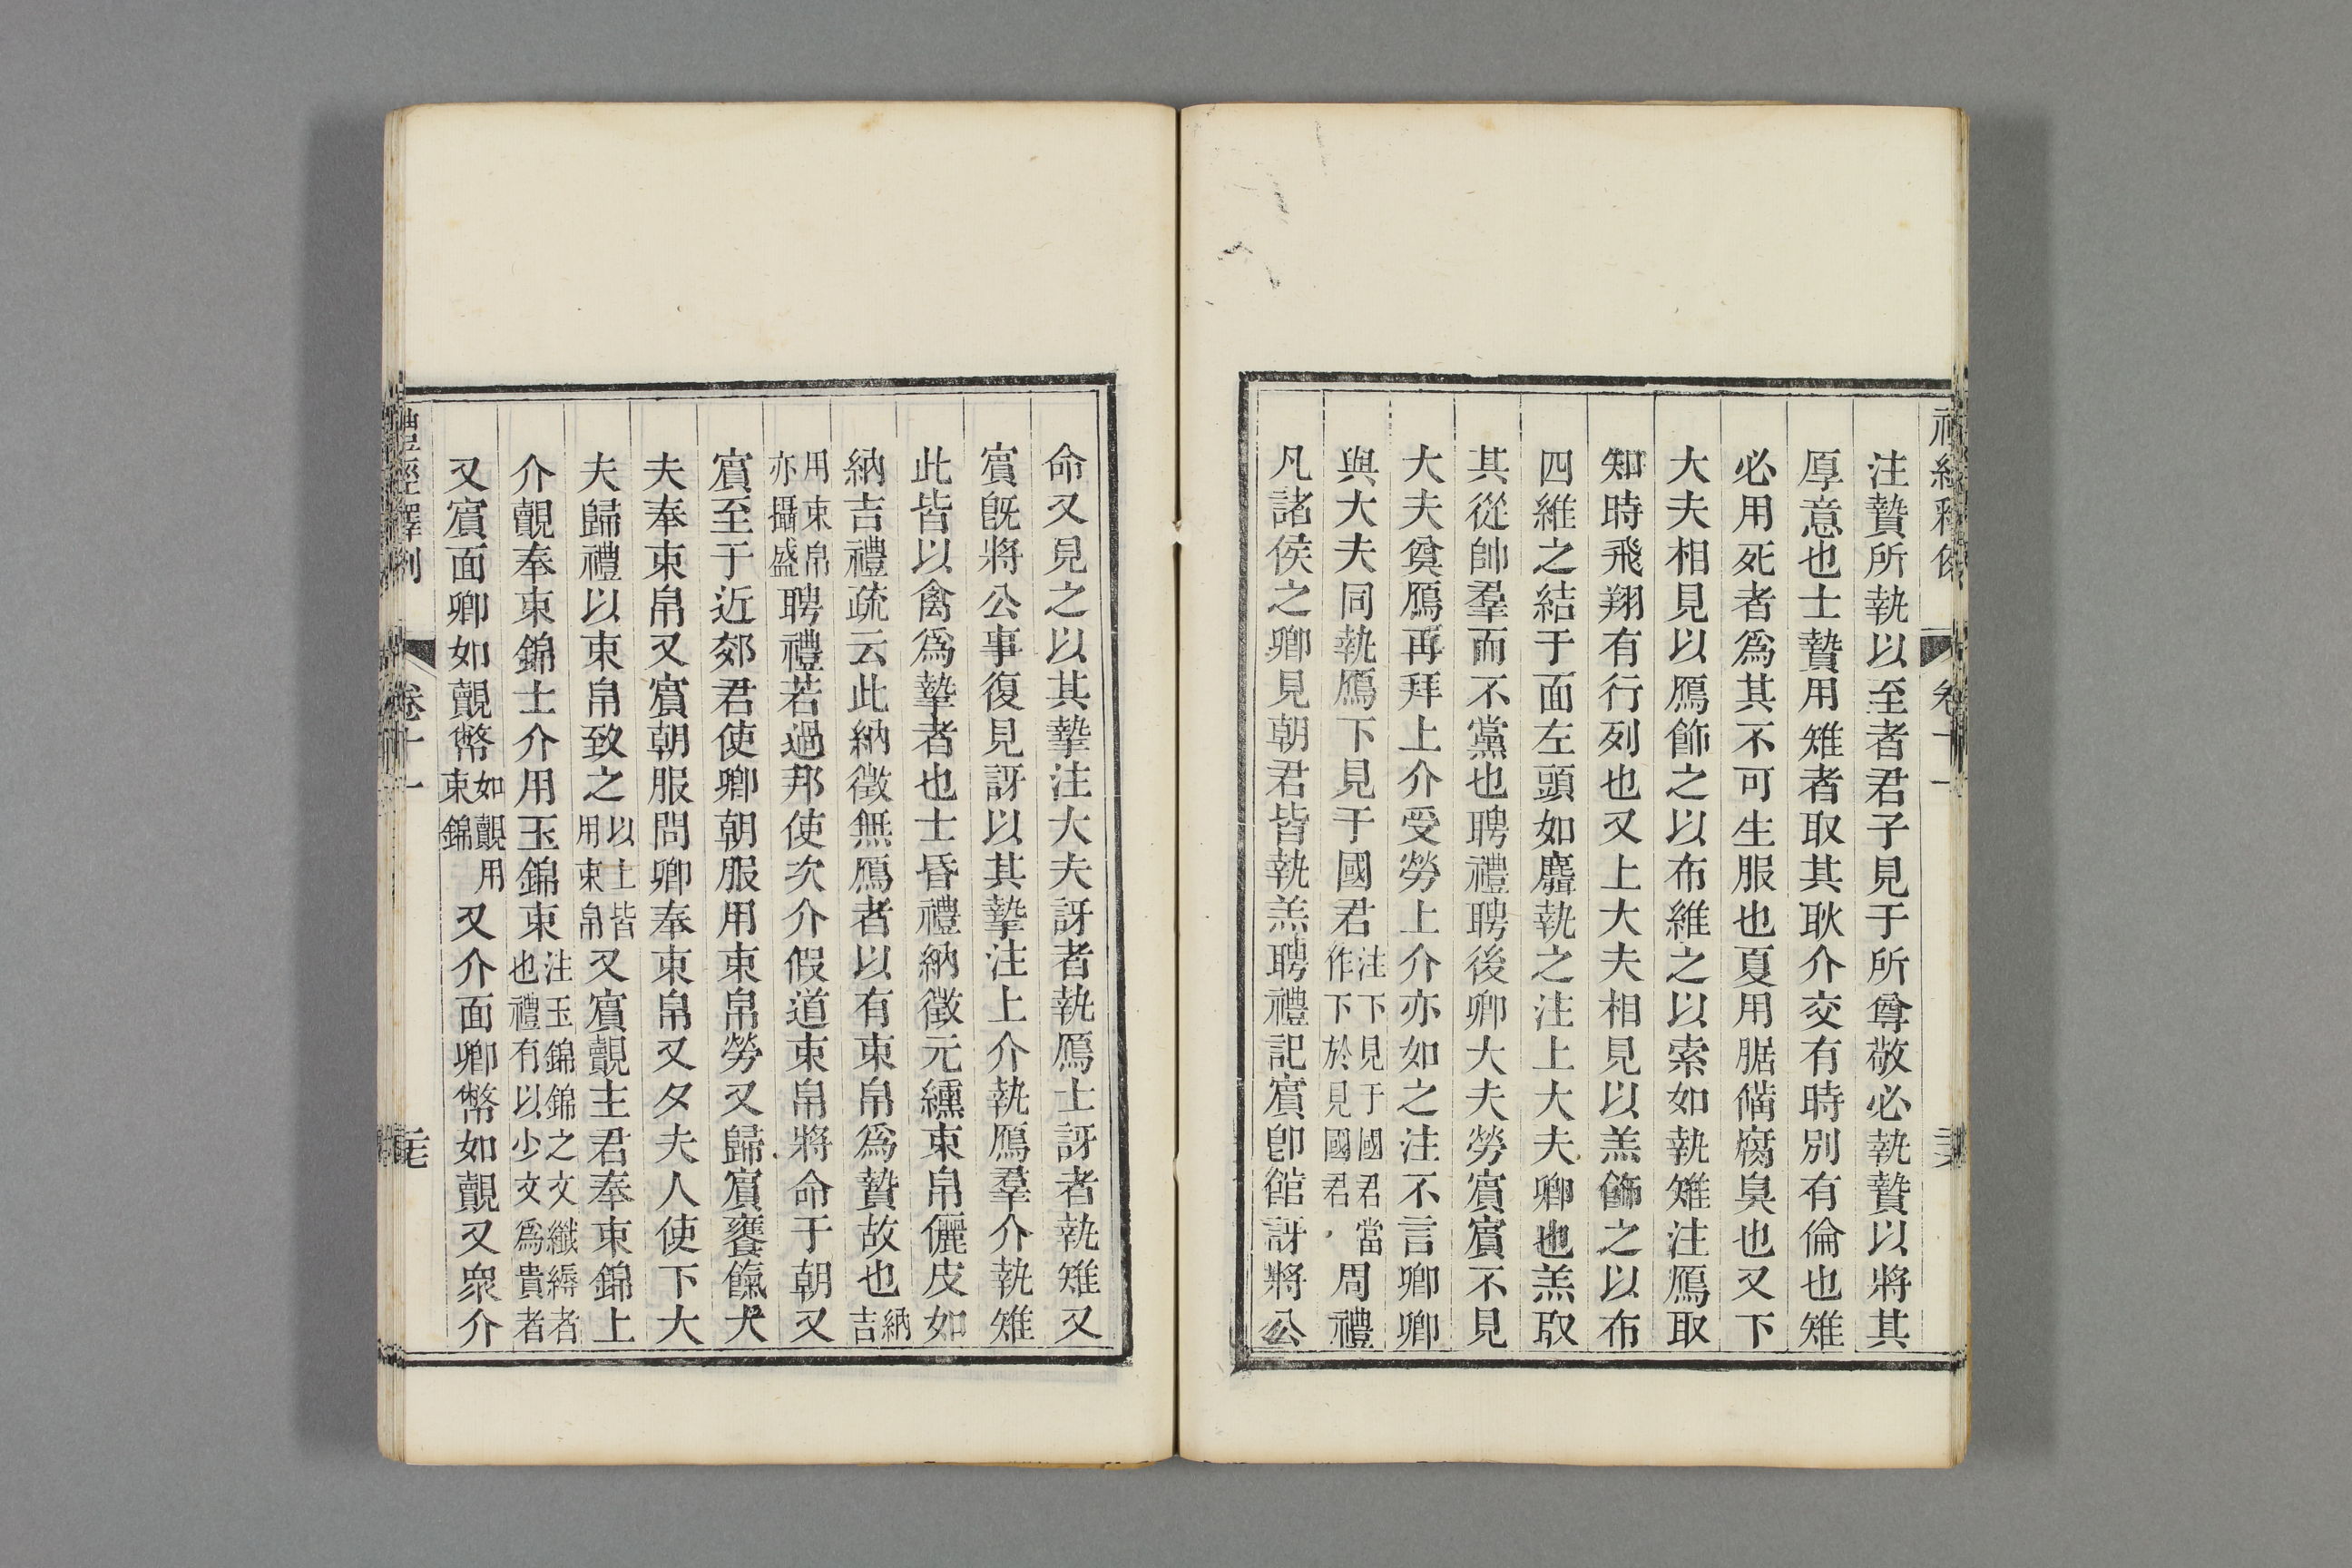 注贄所執以至者君子見于所尊敬必執贄以將其
厚意也士贄用雉者取其耿介交有時別有倫也雉
必用死者爲其不可生服也夏用腒備腐臭也又下
大夫相見以鴈飾之以布維之以索如執雉注鴈取
知時飛翔有行列也又上大夫相見以羔飾之以布
四維之結于面左頭如麛執之注上大夫卿也羔取
其從帥羣而不黨也聘禮聘後卿大夫勞賓賓不見
大夫奠鴈再拜上介受勞上介亦如之注不言卿卿
與大夫同執鴈下見于國君注下見于國君當作下於見國君周禮
凡諸侯之卿見朝君皆執羔聘禮記賓卽館訝將公
命又見之以其摯注大夫訝者執鴈士訝者執雉又
賓旣將公事復見訝以其摯注上介執鴈羣介執雉
此皆以禽爲摯者也士昏禮納徵元纁束帛儷皮如
納吉禮疏云此納徵無鴈者以有束帛爲贄故也納吉
用束帛亦攝盛聘禮若過邦使次介假道束帛將命于朝又
賓至于近郊君使卿朝服用束帛勞又歸賓饔餼大
夫奉束帛又賓朝服問卿奉束帛又夕夫人使下大
夫歸禮以束帛致之以上皆用束帛又賓覿主君奉束錦上
介覿奉束錦士介用玉錦束注玉錦錦之文纖縟者也禮有以少文爲貴者
又賓面卿如覿幣如覿用束錦又介面卿幣如覿又衆介
卷十一